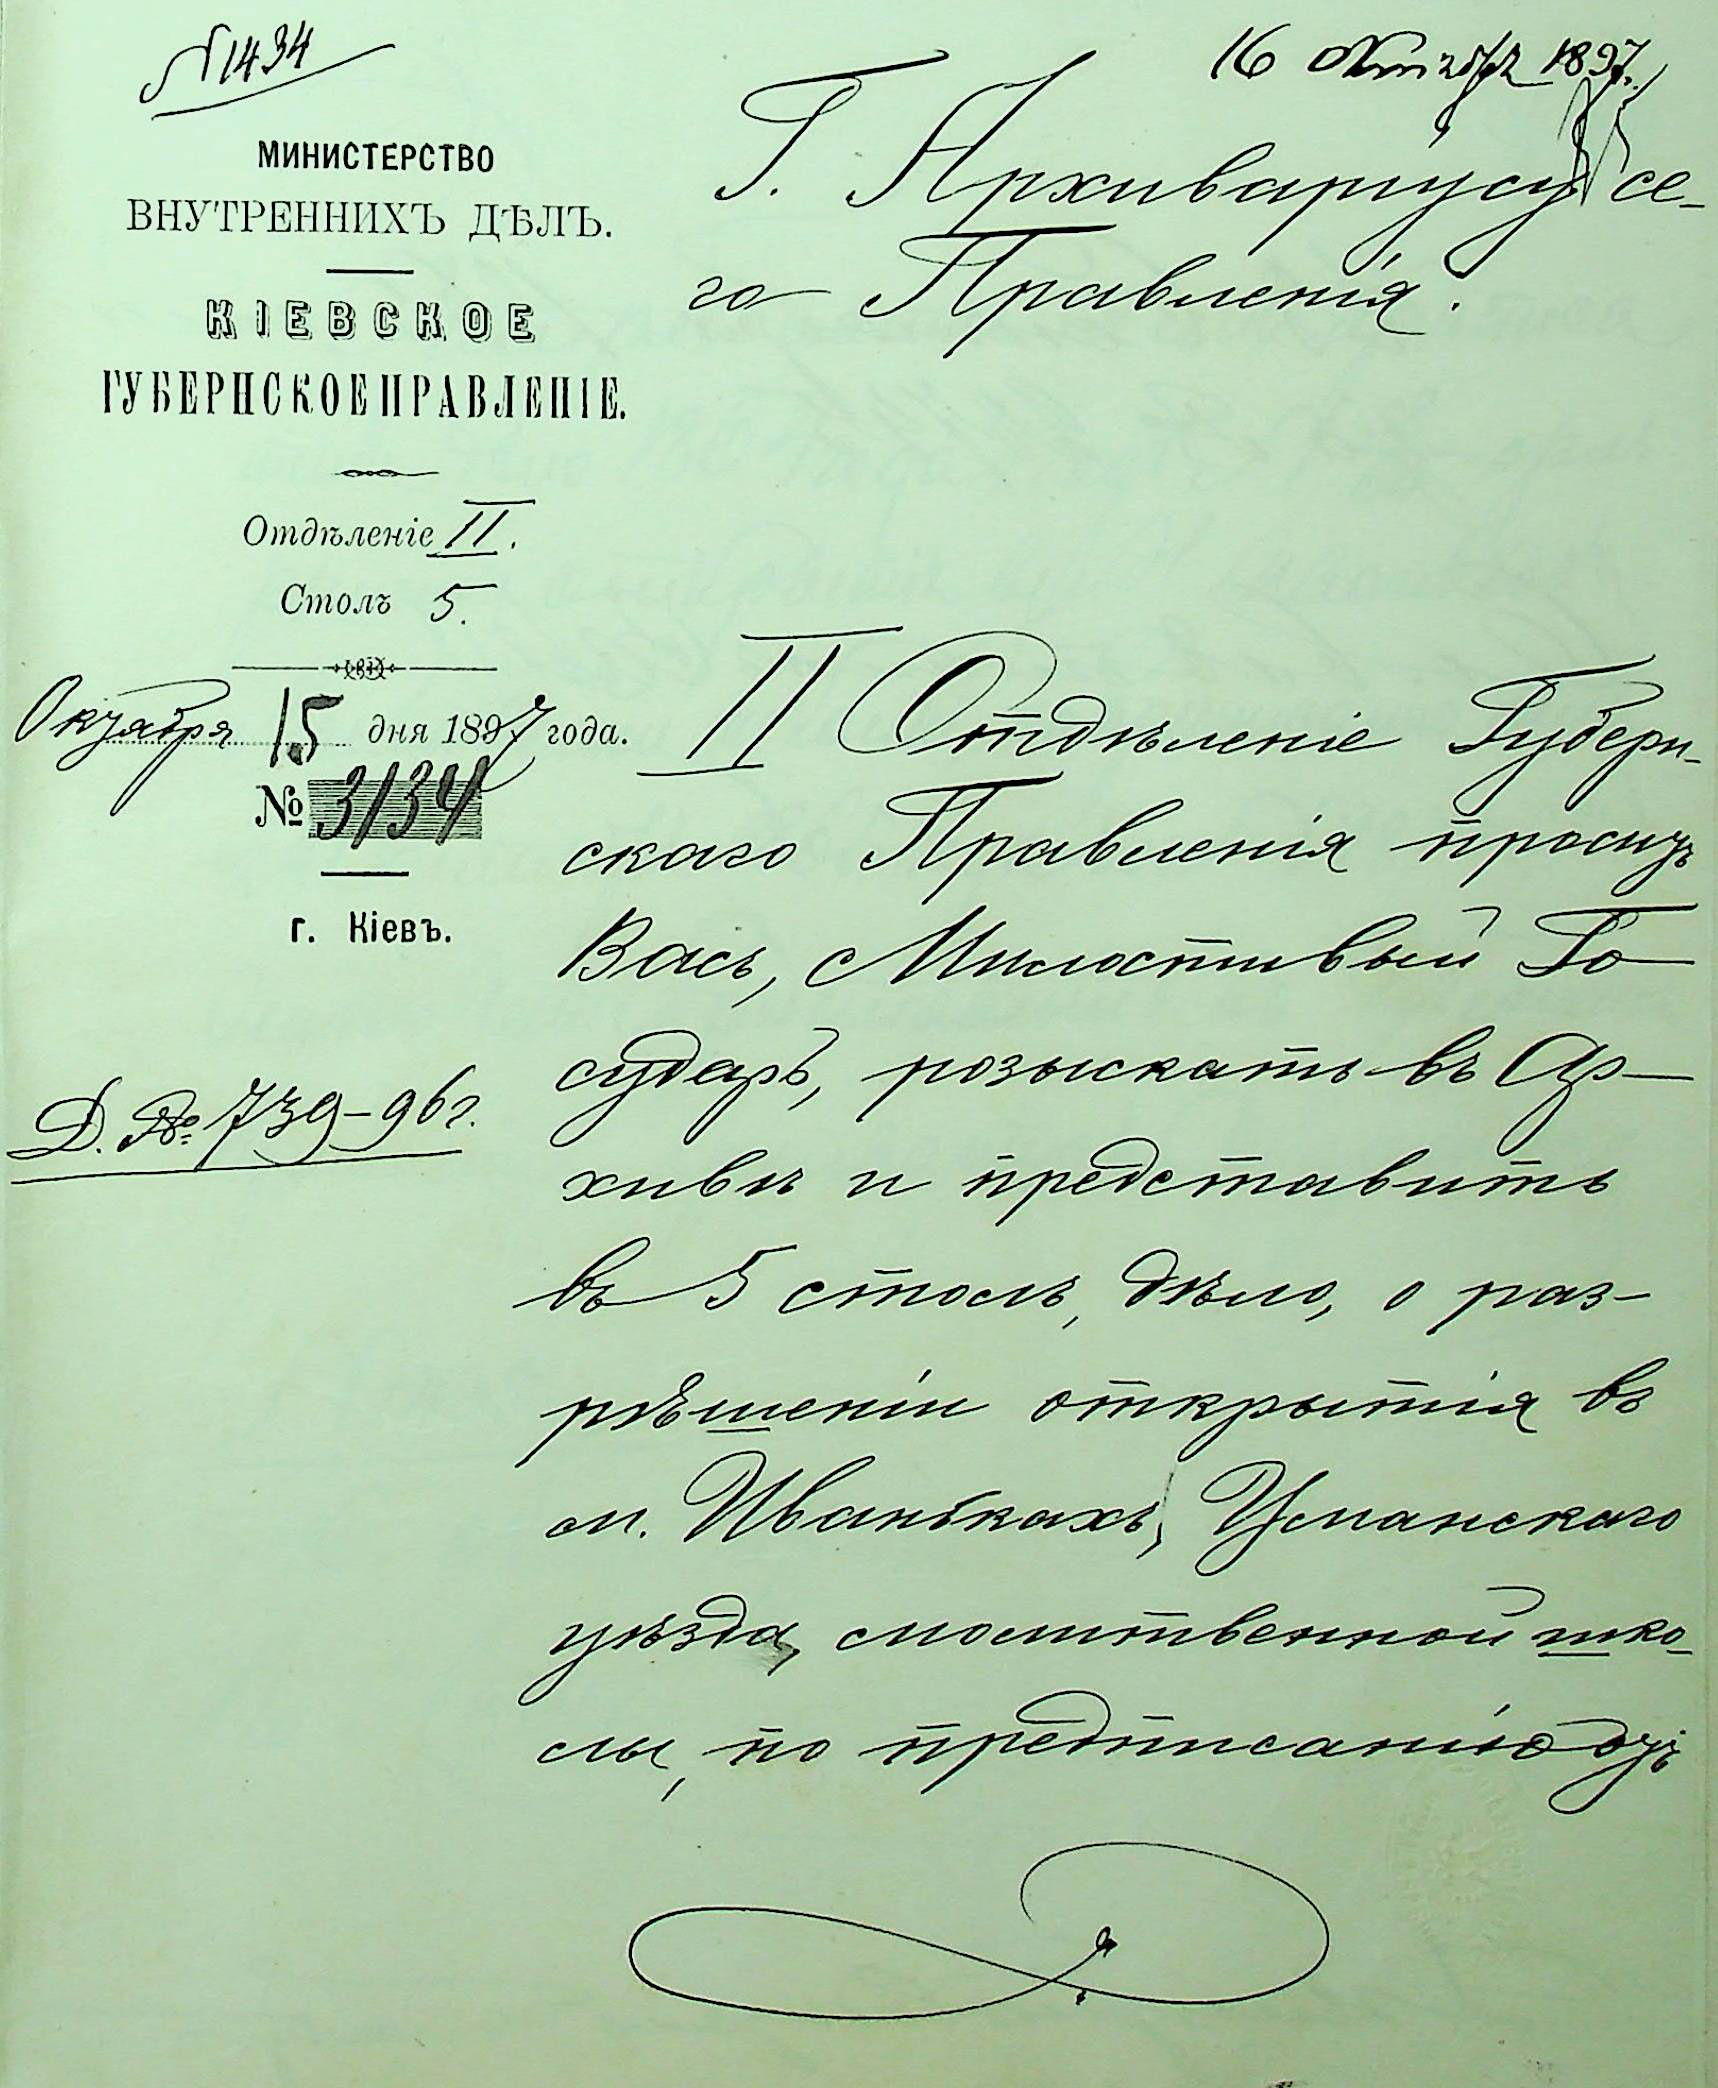 № 1434
16 Октября 1897 г.
МИНИСТЕРСТВО
ВНУТРЕННИХЪ ДѢЛЪ.
КІЕВСКОЕ
ГУБЕРНСКОЕ ПРАВЛЕНІЕ.
Отдѣленіе II.
Столъ 5.
Октября 15 дня 1897 года.
№ 3134
г. Кіевъ.
Д. № 739-96 г.
Г. Архиваріусу се-
го Правленія.
II Отдѣленіе Губерн-
скаго Правленія проситъ
Васъ, Милостивый Го-
сударь, розыскать въ Ар-
хивѣ и представить
въ 5 столъ, дѣло, о раз-
рѣшеніи открытія въ
м. Иванькахъ, Уманскаго
уѣзда, молитвенной шко-
лы, по предписанію отъ